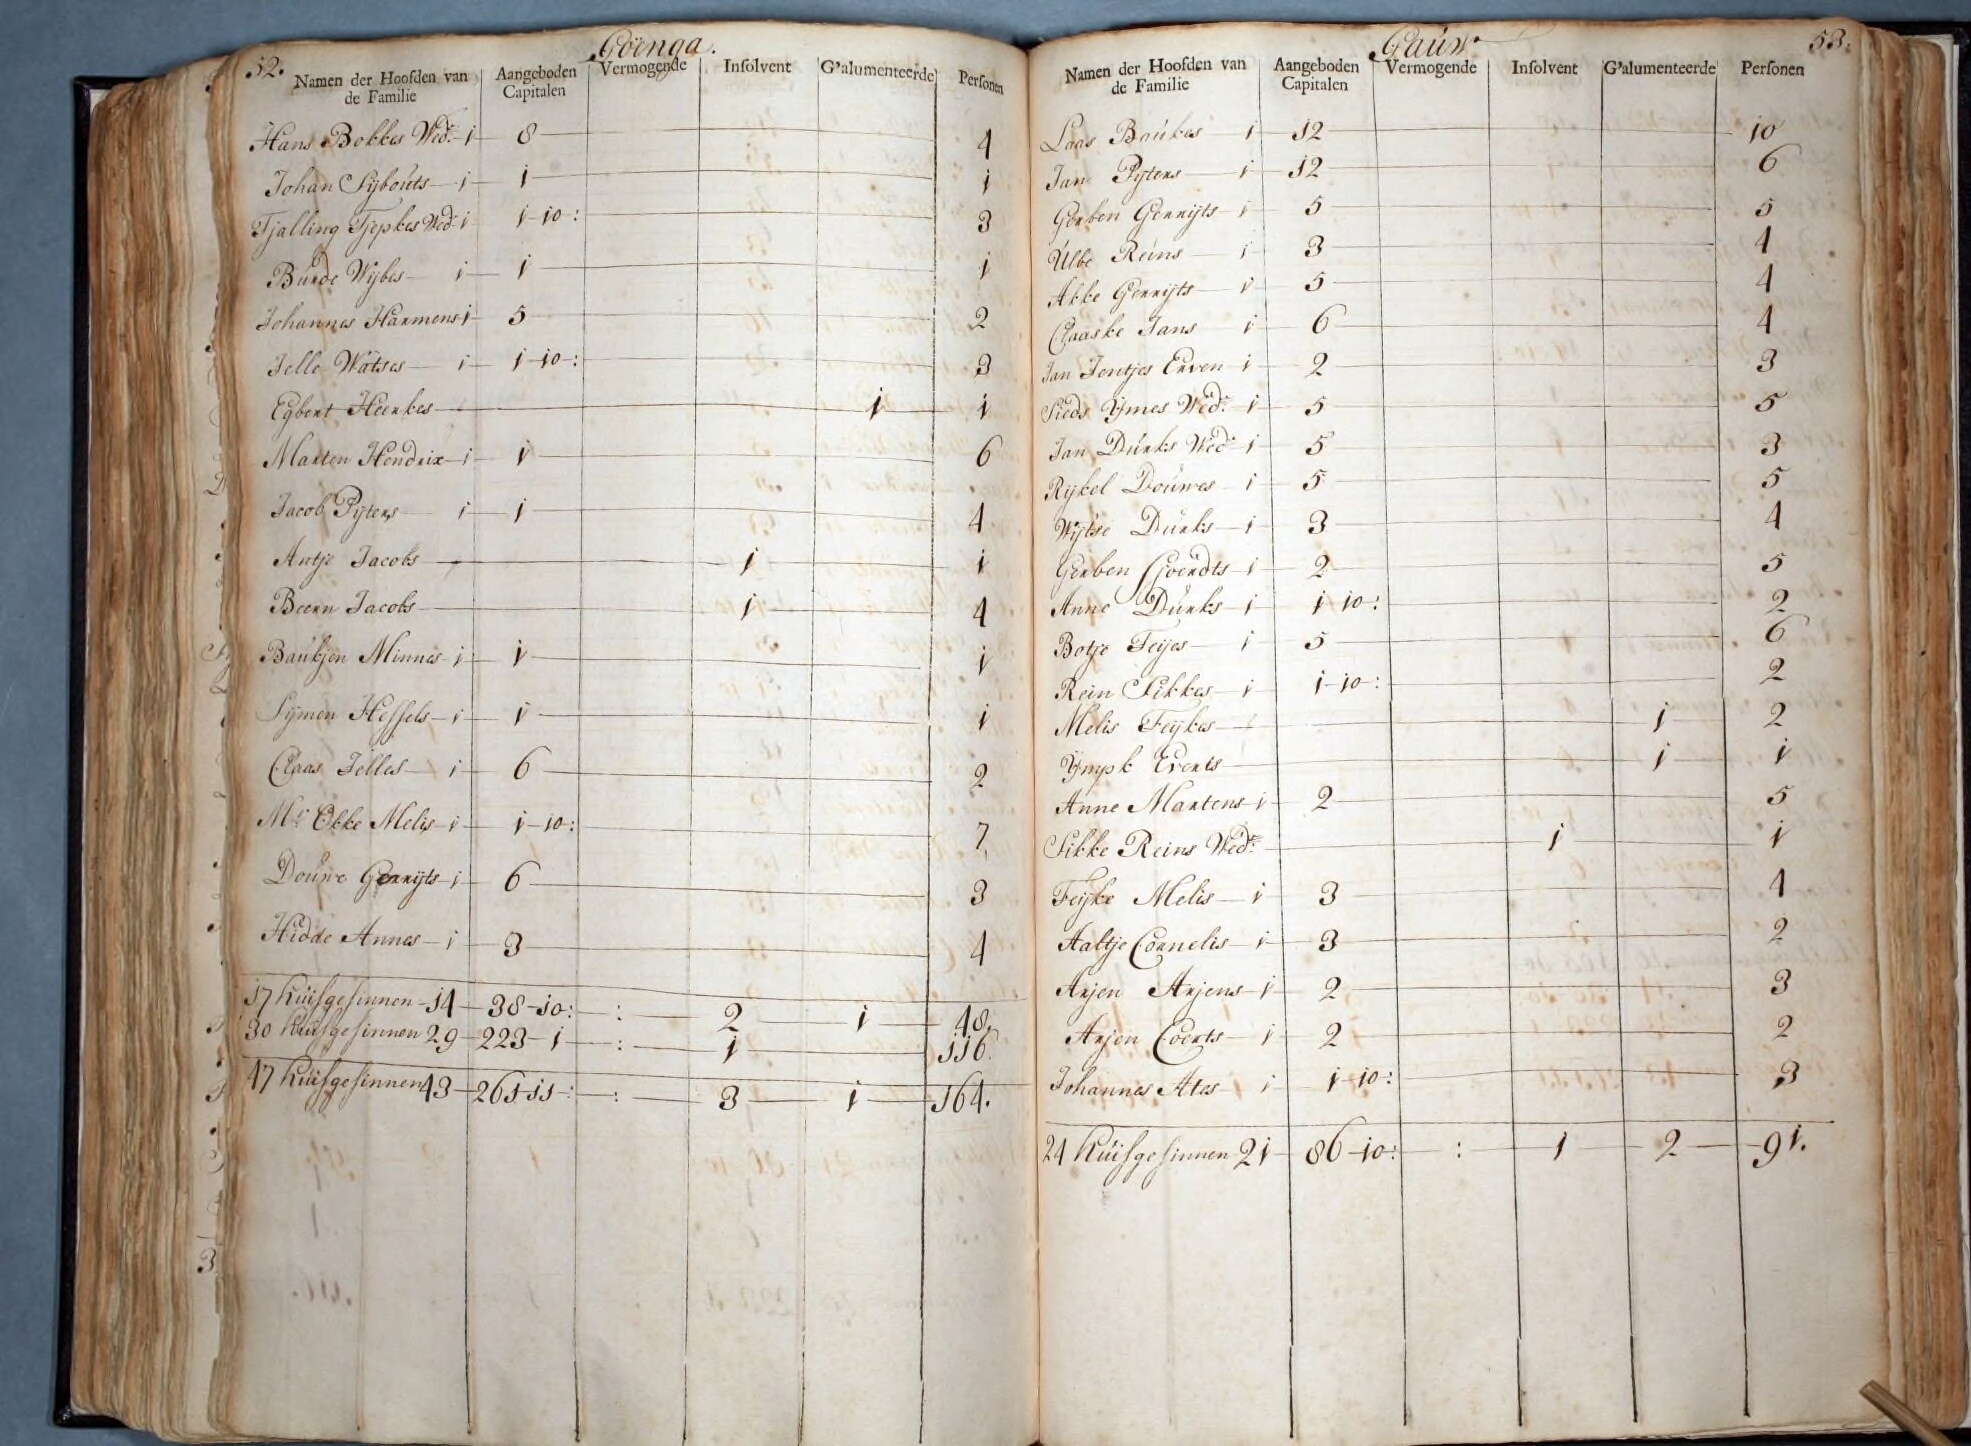 52. Goïnga.
Namen der Hoofden van de Familie Aangeboden Capitalen Vermogende Insolvent G'alumenteerde Personen
Hans Bokkes Wed: 1 8 4
Johan Sijbouts 1 1 1
Tjalling Tjepkes Wed: 1 1-10: 3
Burde Wijbes 1 1 1
Johannes Harmens 1 5 2
Jelle Watses 1 1-10: 3
Egbert Heerkes 1 1
Marten Hendrix 1 1 6
Jacob Pijters 1 1 4
Antje Jacobs 1 1
Beern Jacobs 1 4
Baukjen Minnes 1 1 1
Sijmen Hessels 1 1 1
Claas Jelles 1 6 2
Mr: Ekke Melis 1 1-10: 7
Douwe Gerrijts 1 6 3
Hidde Annes 1 3 4
17 huisgesinnen 14 38-10: : 2 1 48.
30 huisgesinnen 29 223-1 : 1 116.
47 huisgesinnen 43 261-11: : 3 1 164.
Gauw 53.
Namen der Hoofden van de Familie Aangeboden Capitalen Vermogende Insolvent G'alumenteerde Personen
Laas Baukes 1 12 10
Jan Pijters 1 12 6
Gerben Gerrijts 1 5 5
Ulbe Reins 1 3 4
Akke Gerrijts 1 5 4
Claaske Jans 1 6 4
Jan Jentjes Erven 1 2 3
Sieds Ymes Wed: 1 5 5
Jan Durks Wed: 1 5 3
Rijkel Douwes 1 5 5
Wijtse Durks 1 3 4
Gerben Sjoerdts 1 2 5
Anne Durks 1 1-10: 2
Botje Feijes 1 5 6
Rein Sikkes 1 1-10: 2
Melis Feijkes 1 2
Ympk Everts 1 1
Anne Martens 1 2 5
Sikke Reins Wed: 1 1
Feijke Melis 1 3 4
Aaltje Cornelis 1 3 2
Arjen Arjens 1 2 3
Arjen Coerts 1 2 2
Johannes Ates 1 1-10: 3
24 huisgesinnen 21 86-10: : 1 2 91.